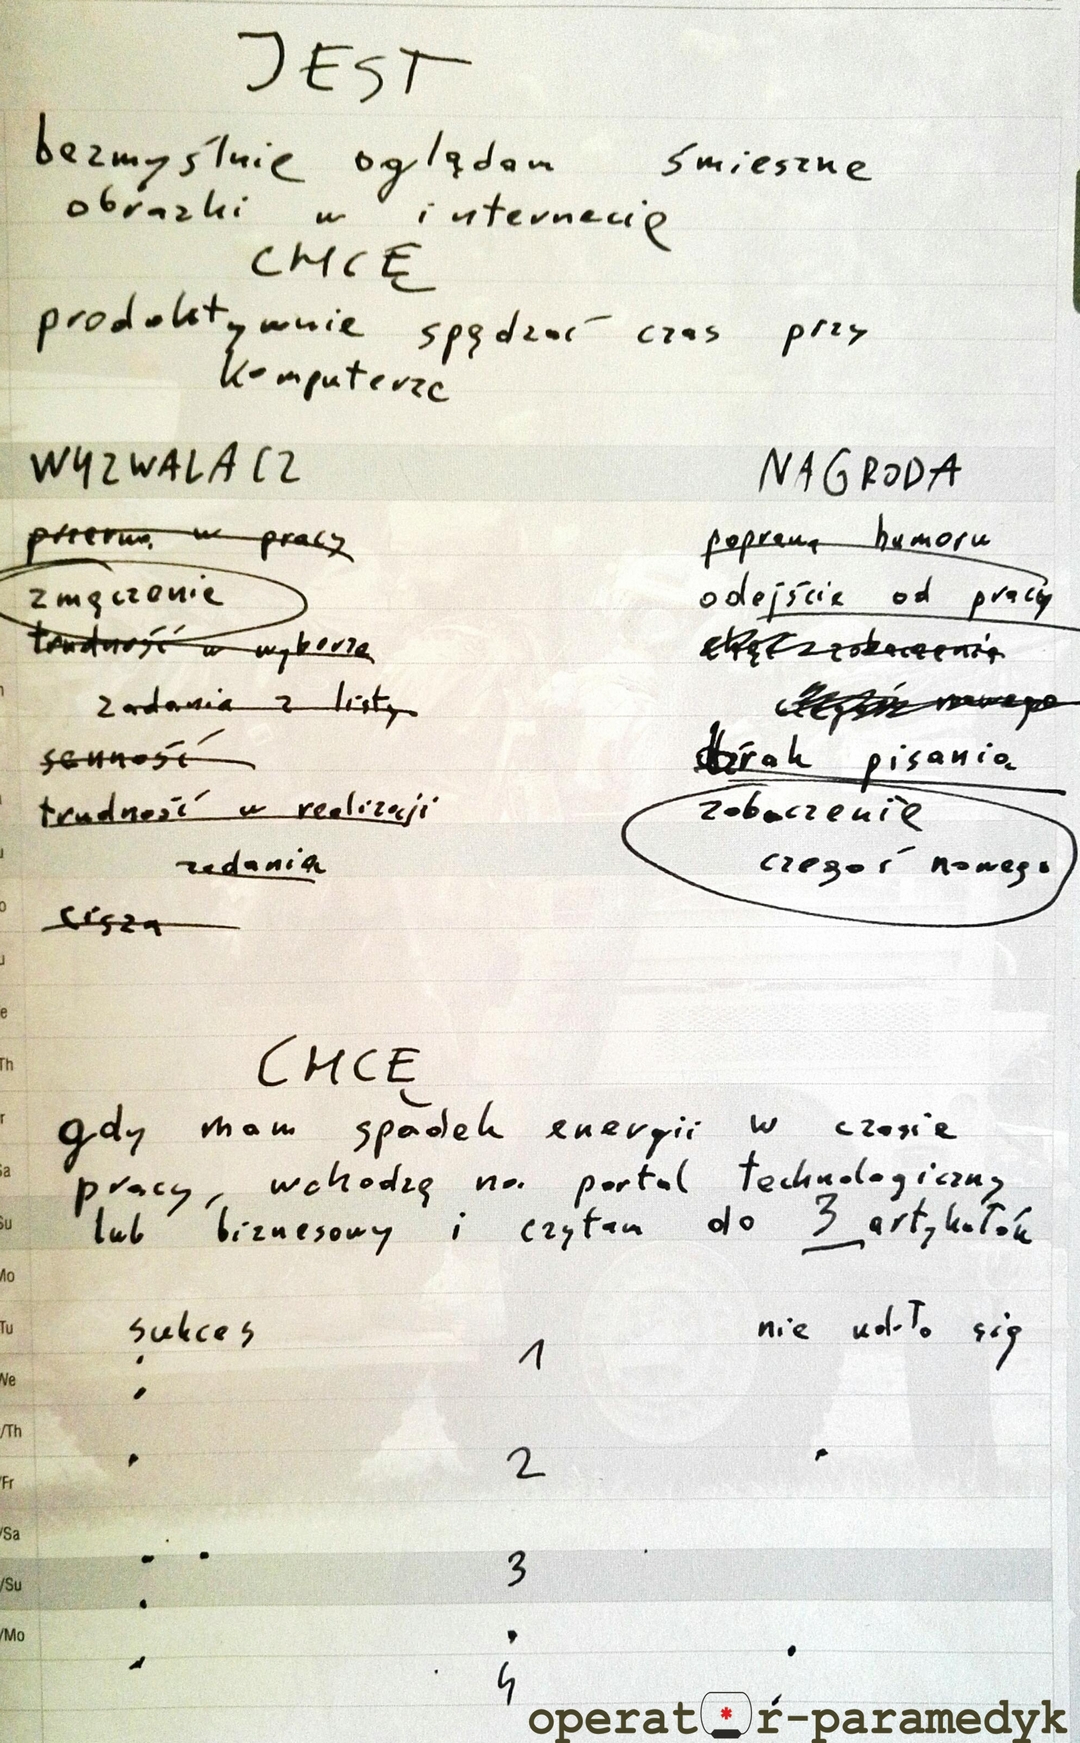 JEST
bezmyślnie oglądam śmieszne
obrazki w internecie
CHCĘ
produktywnie spędzać czas przy
komputerze
WYZWALACZ NAGRODA
przerwa w pracy poprawa humoru
zmęczenie odejście od pracy
trudność w wyborze zobaczenia
zadania z listy nowego
senność brak pisania
trudność w realizacji zobaczenie
zadania czegoś nowego
cisza
CHCĘ
gdy mam spadek energii w czasie
pracy, wchodzę na portal technologiczny
lub biznesowy i czytam do 3 artykułów
sukces nie udało się
1
2
3
4
Th
Sa
Su
Mo
Tu
We
/Th
/Fr
/Sa
/Su
/Mo
operator-paramedyk